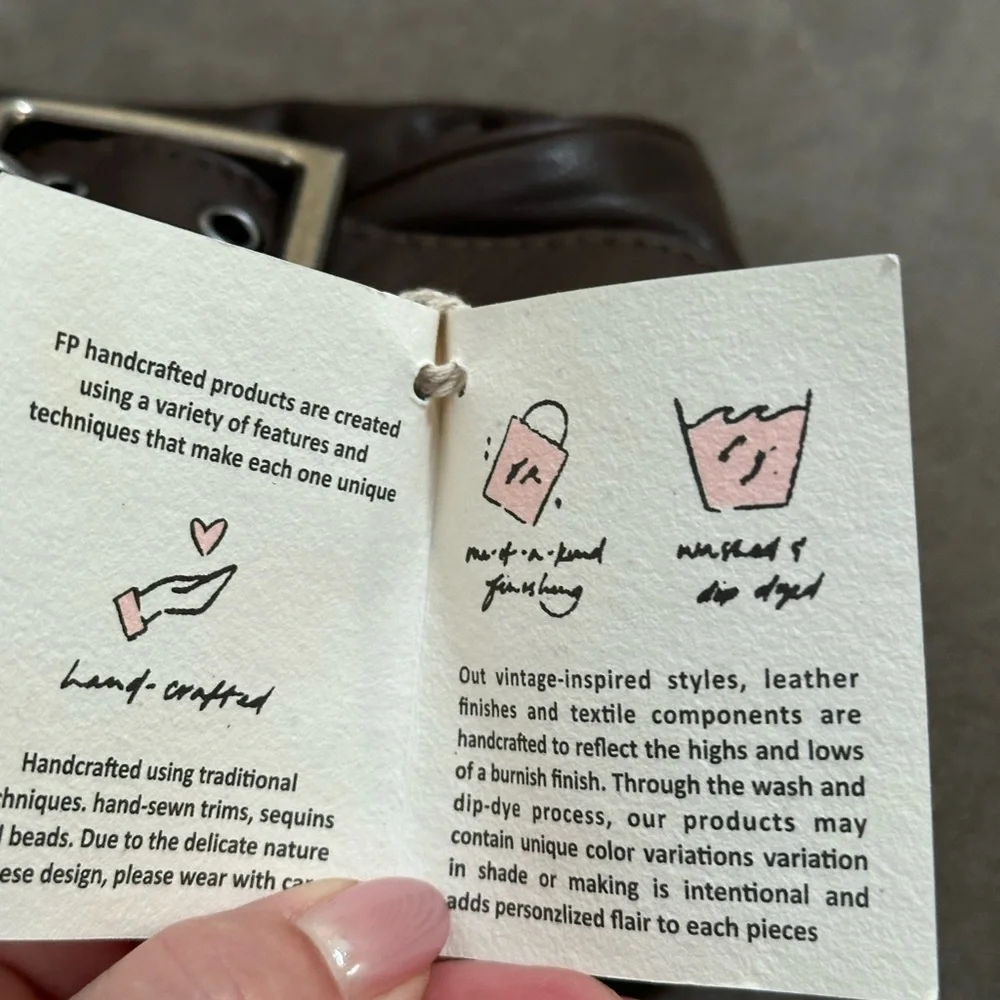 FP handcrafted products are created
using a variety of features and
techniques that make each one unique
hand-crafted
Handcrafted using traditional
chniques. hand-sewn trims, sequins
beads. Due to the delicate nature
ese design, please wear with
finishing
washed &
dip dyed
Out vintage-inspired styles, leather
finishes and textile components are
handcrafted to reflect the highs and lows
of a burnish finish. Through the wash and
dip-dye process, our products may
contain unique color variations variation
in shade or making is intentional and
adds personzlized flair to each pieces